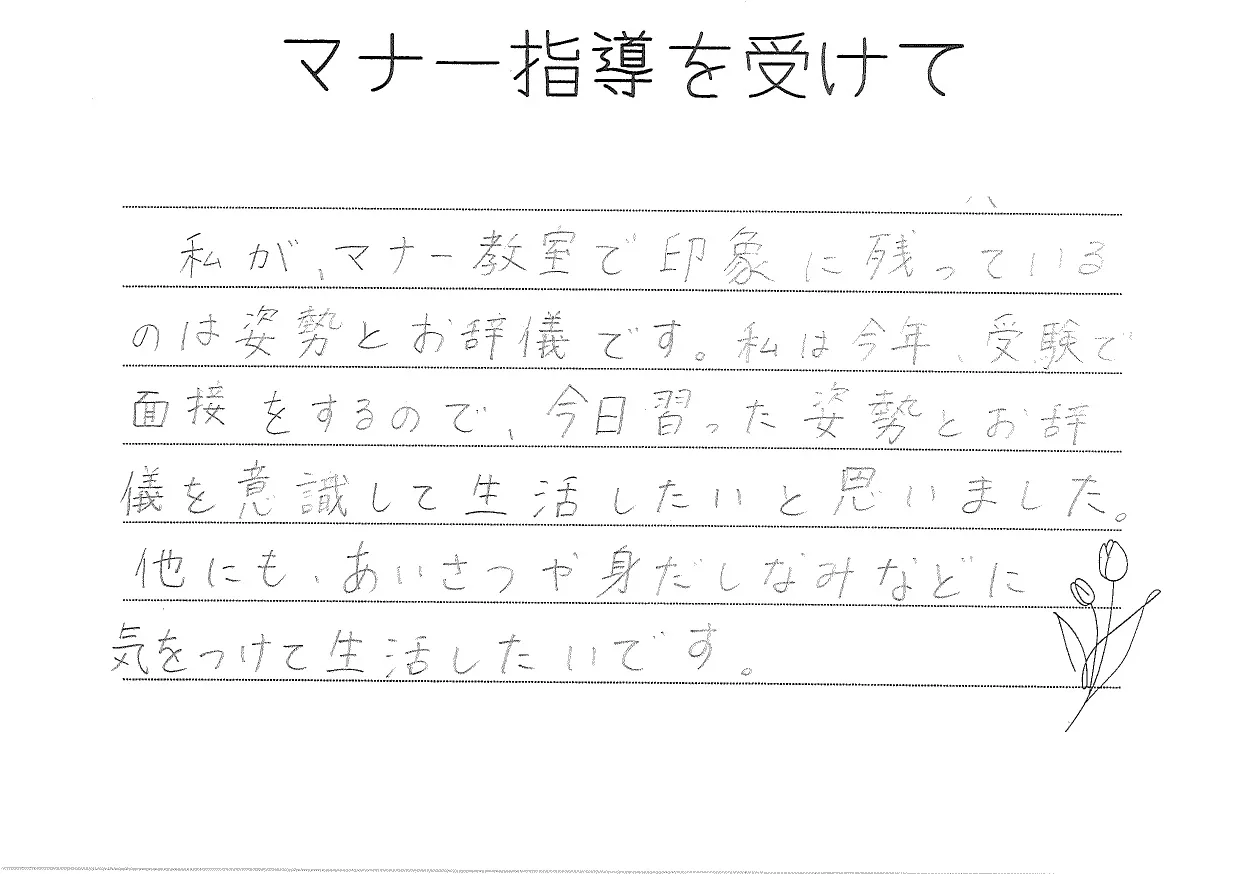 マナー指導を受けて
私が、マナー教室で印象に残っている
のは姿勢とお辞儀です。私は今年、受験で
面接をするので、今日習った姿勢とお辞
儀を意識して生活したいと思いました。
他にも、あいさつや身だしなみなどに
気をつけて生活したいです。